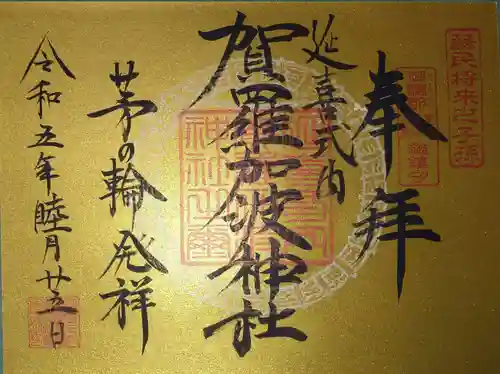 蘇民将来之子孫
奉拝
延喜式内
賀羅加波神社
茅の輪発祥
令和五年睦月廿五日